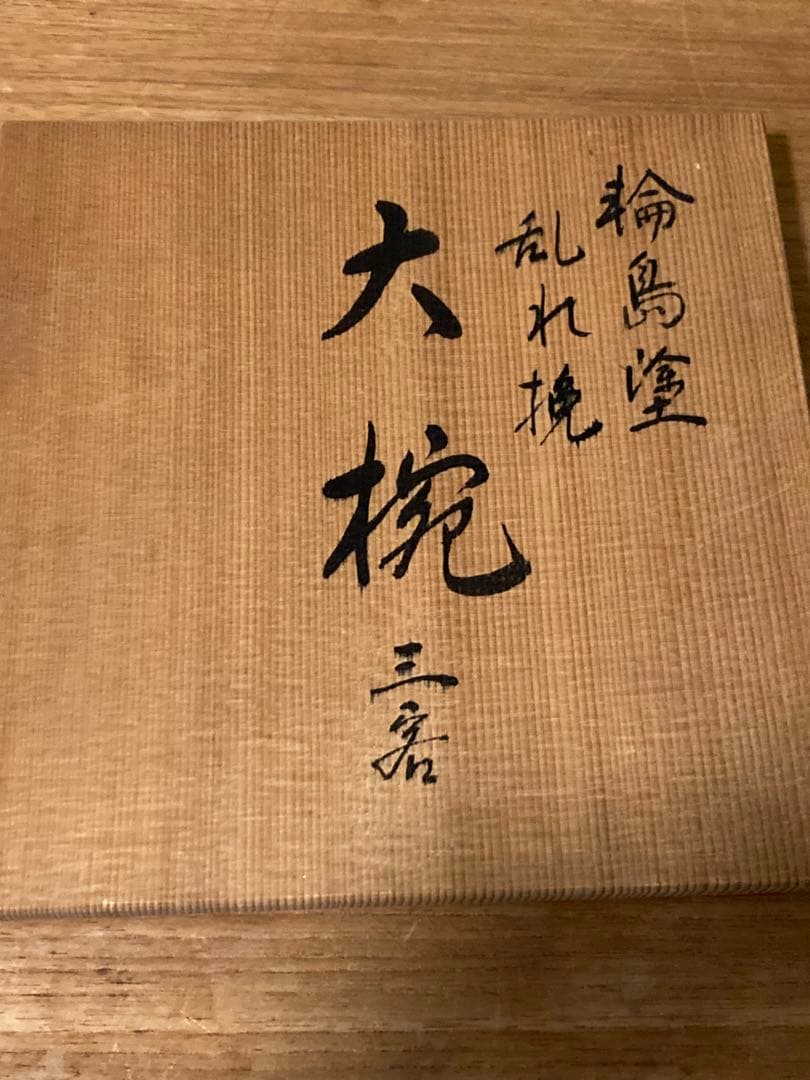 輪島塗
乱れ挽
大椀
三客